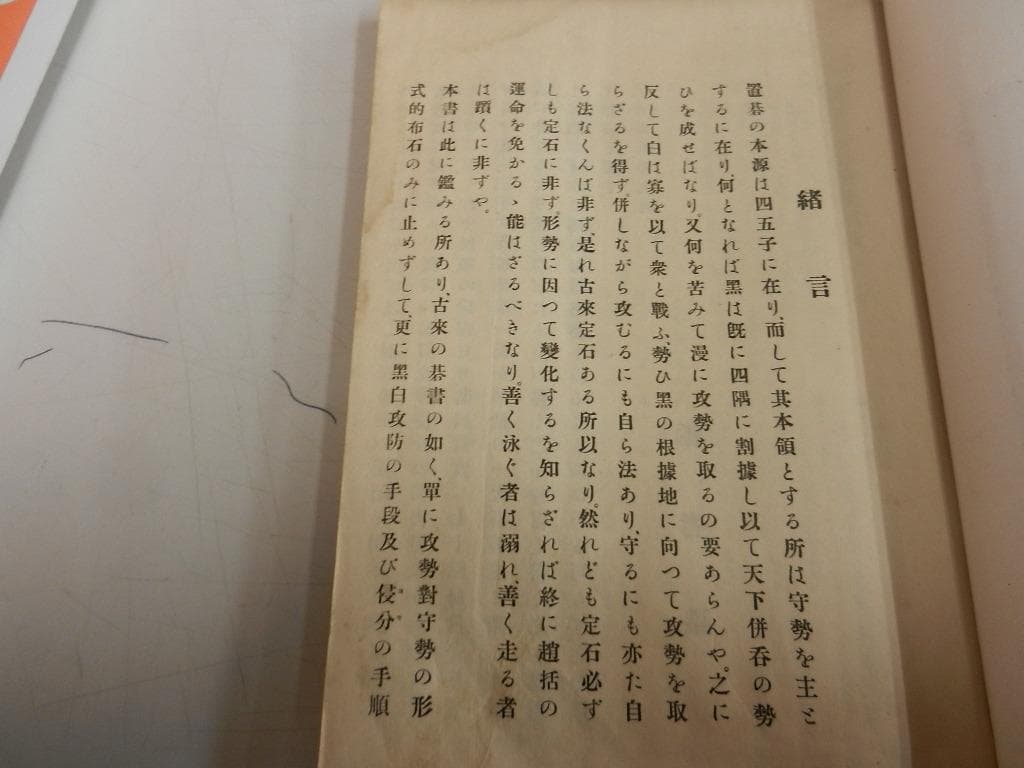 緒言
置碁の本源は四五子に在り、而して其本領とする所は守勢を主と
するに在り、何となれば黑は既に四隅に割據し以て天下併呑の勢
ひを成せばなり。又何を苦みて漫に攻勢を取るの要あらんや。之に
反して白は寡を以て衆と戰ふ、勢ひ黑の根據地に向つて攻勢を取
らざるを得ず。併しながら攻むるにも自ら法あり、守るにも亦た自
ら法なくんば非ず、是れ古來定石ある所以なり。然れども定石必ず
しも定石に非ず。形勢に因つて變化するを知らざれば終に趙括の
運命を免かるゝ能はざるべきなり。善く泳ぐ者は溺れ、善く走る者
は躓くに非ずや。
本書は此に鑑みる所あり、古來の碁書の如く、單に攻勢對守勢の形
式的布石のみに止めずして、更に黑白攻防の手段及び侵分の手順